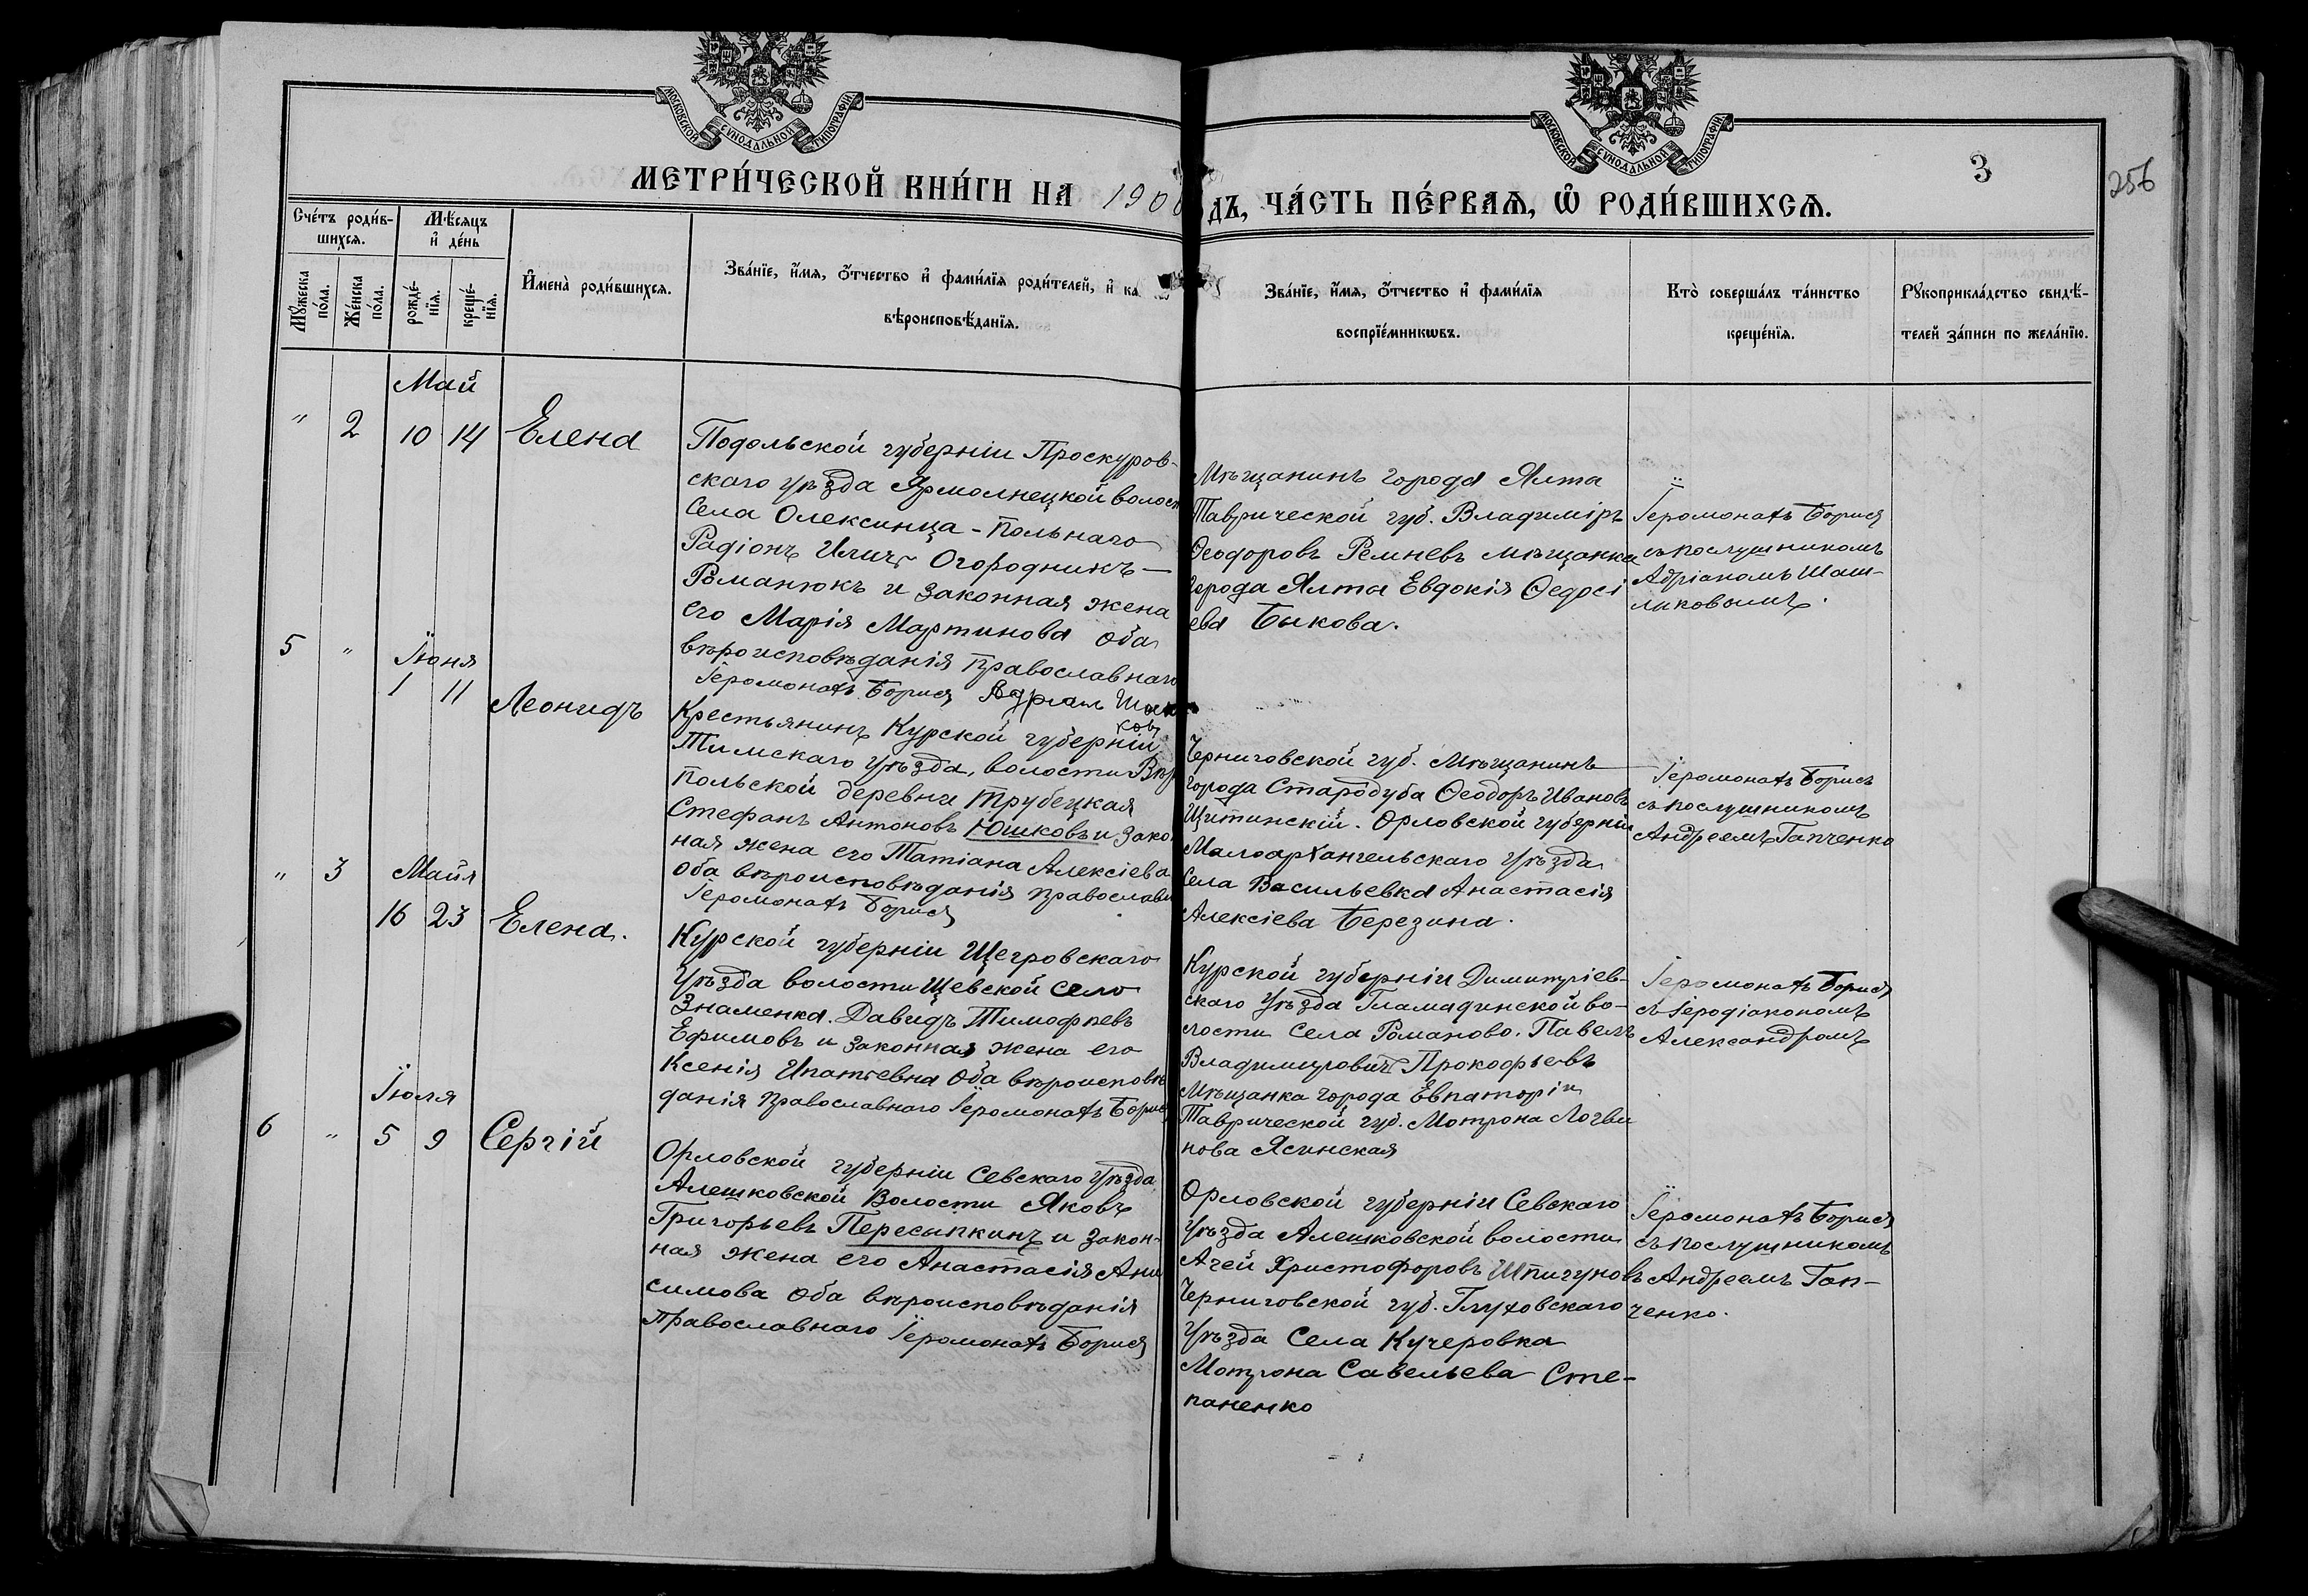 МОСКОВСКОЙ СѴНОДАЛЬНОЙ ТИПОГРАФІИ
МОСКОВСКОЙ СѴНОДАЛЬНОЙ ТИПОГРАФІИ
3
256
МЕТРИ́ЧЕСКОЙ КНИ́ГИ НА 190
ДЪ, ЧА́СТЬ ПЕ́РВАѦ, Ѡ҆ РОДИ́ВШИХСѦ.
Сче́тъ роди́в-
шихсѧ.
Мѣ́сѧцъ
и҆ де́нь
Мꙋ́жеска
по́ла.
Же́нска
по́ла.
рожде́-
нїѧ.
креще́-
нїѧ.
И҆мена̀ роди́вшихсѧ.
Зва́нїе, и҆́мѧ, ѻ҆́тчество и҆ фами́лїѧ роди́телей, и҆ ка
вѣроисповѣ́данїѧ.
Зва́нїе, и҆́мѧ, ѻ҆́тчество и҆ фами́лїѧ
воспрїе́мникѡвъ.
Кто̀ соверша́лъ та́инство
креще́нїѧ.
Рꙋкоприкла́дство свидѣ́-
телей за́писи по жела́нїю.
Май
" 2 10 14 Елена
Подольской губерніи Проскуров-
скаго уѣзда Ярмолнецкой волост
Села Олексинца - Польнаго
Радіонъ Иличъ Огородникъ —
Романюкъ и законная жена
его Марія Мартинова оба
вѣроисповѣданія православнаго
Іеромонахъ Борисъ Адріан
ков
Мѣщанинъ города Ялта
Таврической губ. Владиміръ
Ѳеодоровъ Ремневъ мѣщанка
города Ялты Евдокія Ѳедосі
ева Быкова.
Іеромонахъ Борисъ
съ послушникомъ
Адріаномъ Шаш-
ликовымъ.
5 " Іюня
1 11 Леонидъ
Крестьянинъ Курской губерніи
Тимскаго уѣзда, волости
польской деревни Трубецкая
Стефанъ Антоновъ Юшковъ и зако
ная жена его Татіана Алексіева
оба вѣроисповѣданія православн
Іеромонахъ Борисъ
Черниговской губ. мѣщанинъ
города Стародуба Ѳеодоръ Ивановъ
Щитинскій. Орловской губерніи
Малоархангельскаго уѣзда
Села Васильевка Анастасія
Алексіева Березина.
Іеромонахъ Борисъ
съ послушникомъ
Андреемъ Гапченко
" 3 Майя
16 23 Елена.
Курской губерніи Щегровскаго
уѣзда волости Щевской село
Знаменка. Давидъ Тимофѣевъ
Ефимовъ и законная жена его
Ксенія Ипатьевна оба вѣроисповѣ
данія православнаго Іеромонахъ Борисъ
Курской губерніи Димитріев-
скаго уѣзда Гламадинской во-
лости Села Романово. Павелъ
Владимировичъ Прокофьевъ
мѣщанка города Евпаторіи
Таврической губ. Мотрона Логви
нова Ясинская
Іеромонахъ Борисъ
съ Іеродіакономъ
Александромъ
Іюля
6 " 5 9 Сергій
Орловской губерніи Севскаго уѣзда
Алешковской Волости Яковъ
Григорьевъ Пересыпкинъ и закон-
ная жена его Анастасія Ани
симова оба вѣроисповѣданія
православнаго Іеромонахъ Борисъ
Орловской губерніи Севскаго
уѣзда Алешковской волости
Агей Христофоровъ Шпигуновъ
Черниговской губ. Глуховскаго
уѣзда Села Кучеровка
Мотрона Савельева Сте-
паненко
Іеромонахъ Борисъ
съ послушникомъ
Андреемъ Гап-
ченко.